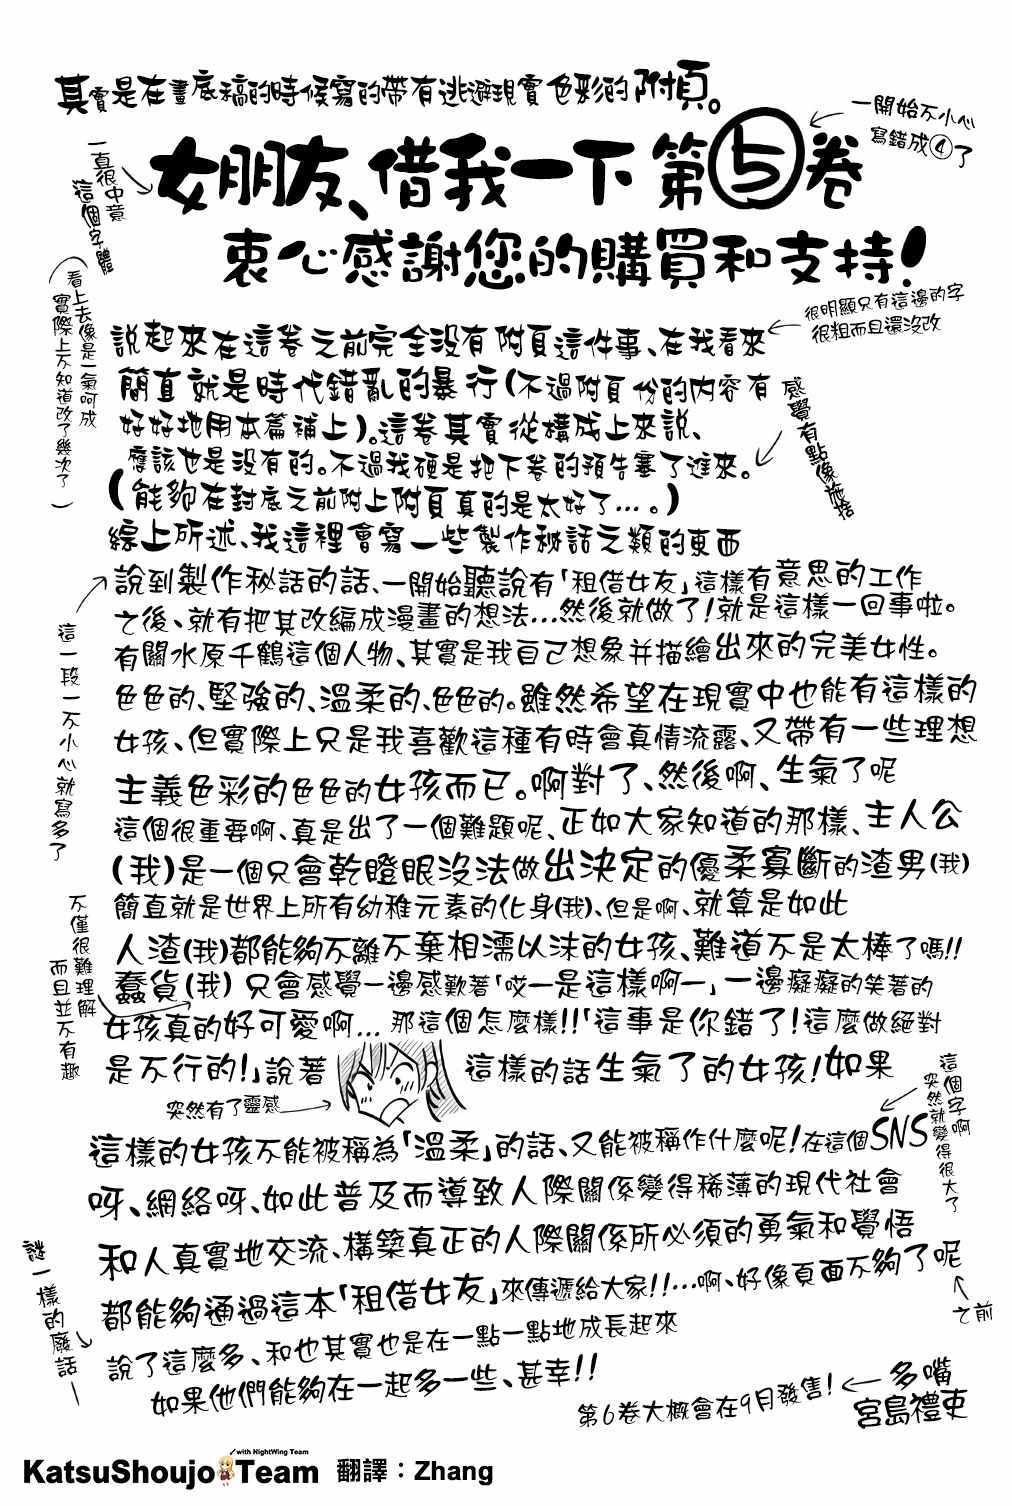 其實是在畫底稿的時候寫的帶有逃避現實色彩的附頁。
一開始不小心
寫錯成④了
一直很中意
這個字體
女朋友、借我一下 第5卷
衷心感謝您的購買和支持!
看上去像是一氣呵成
實際上不知道改了幾次了
很明顯只有這邊的字
很粗而且還沒改
說起來在這卷之前完全沒有附頁這件事、在我看來
簡直就是時代錯亂的暴行(不過附頁份的內容有
好好地用本篇補上)。這卷其實從構成上來說、
應該也是沒有的。不過我硬是把下卷的預告塞了進來。
(能夠在封底之前附上附頁真的是太好了…。)
感覺有點像施捨
綜上所述、我這裡會寫一些製作秘話之類的東西
說到製作秘話的話、一開始聽說有「租借女友」這樣有意思的工作
之後、就有把其改編成漫畫的想法…然後就做了!就是這樣一回事啦。
有關水原千鶴這個人物、其實是我自己想象并描繪出來的完美女性。
這一段一不小心就寫多了
色色的、堅強的、溫柔的、色色的。雖然希望在現實中也能有這樣的
女孩、但實際上只是我喜歡這種有時會真情流露、又帶有一些理想
主義色彩的色色的女孩而已。啊對了、然後啊、生氣了呢
這個很重要啊、真是出了一個難題呢、正如大家知道的那樣、主人公
(我)是一個只會乾瞪眼沒法做出決定的優柔寡斷的渣男(我)
簡直就是世界上所有幼稚元素的化身(我)、但是啊、就算是如此
人渣(我)都能夠不離不棄相濡以沫的女孩、難道不是太棒了嗎!!
不僅很難理解
而且並不有趣
蠢貨(我) 只會感覺一邊感歎著「哎一是這樣啊一」一邊癡癡的笑著的
女孩真的好可愛啊… 那這個怎麼樣!!「這事是你錯了!這麼做絕對
是不行的!」說著 這樣的話生氣了的女孩!如果
突然有了靈感
這個字啊
突然就變得很大了
這樣的女孩不能被稱為「溫柔」的話、又能被稱作什麼呢!在這個SNS
呀、網絡呀、如此普及而導致人際關係變得稀薄的現代社會
和人真實地交流、構築真正的人際關係所必須的勇氣和覺悟
都能夠通過這本「租借女友」來傳遞給大家!!…啊、好像頁面不夠了呢
之前
謎一樣的廢話一
說了這麼多、和也其實也是在一點一點地成長起來
如果他們能夠在一起多一些、甚幸!!
第6卷大概會在9月發售!
多嘴
宮島禮吏
with NightWing Team
KatsuShoujo Team 翻譯：Zhang